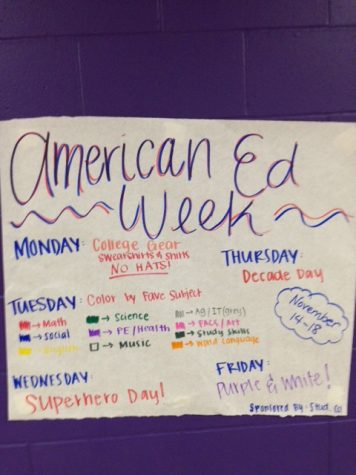 American Ed
Week
MONDAY: College Gear
sweatshirts & shirts
NO HATS!
THURSDAY:
Decade Day
TUESDAY: Color by Fave Subject
→ Math
→ Social
→ English
→ Science
→ PE/Health
→ Music
→ Ag/IT(grey)
→ FACS/Art
→ Study Skills
→ World Language
November
14-18
WEDNESDAY:
Superhero Day!
FRIDAY:
Purple & White!
Sponsored By: Stud. Co